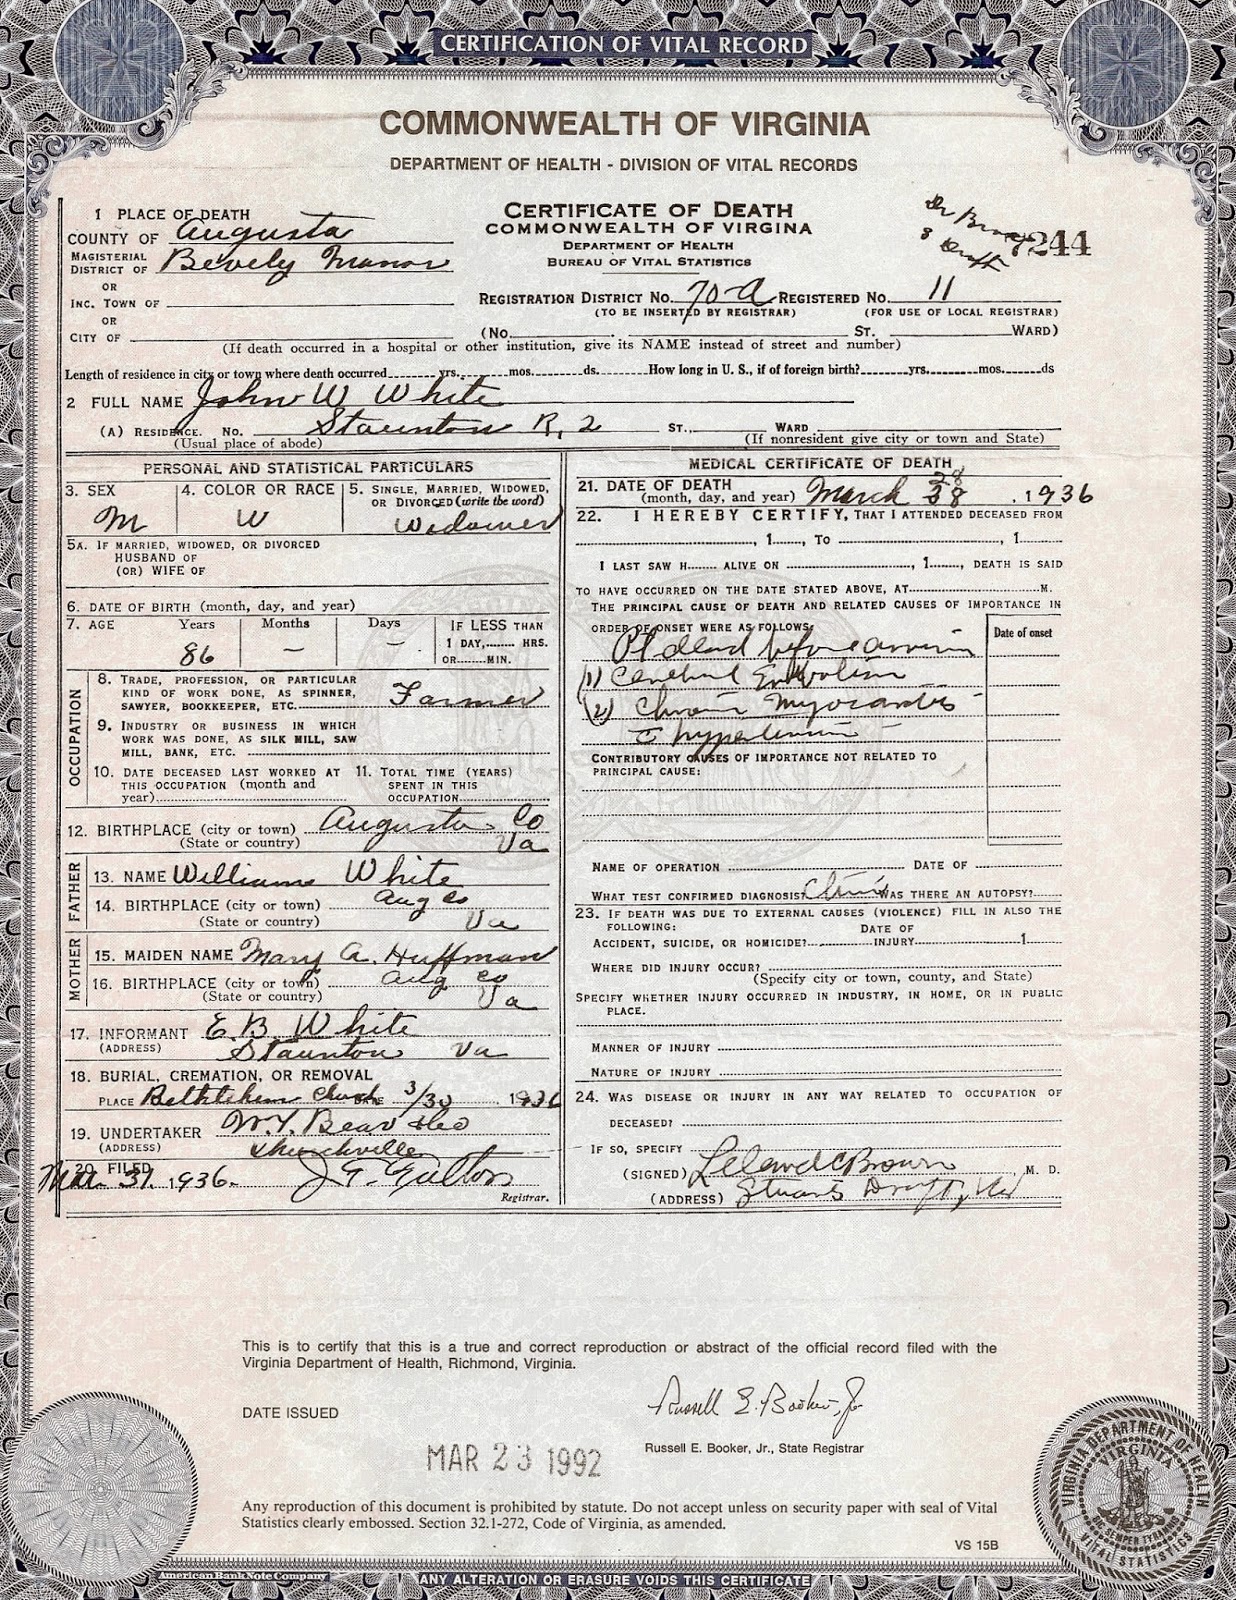 CERTIFICATION OF VITAL RECORD
COMMONWEALTH OF VIRGINIA
DEPARTMENT OF HEALTH - DIVISION OF VITAL RECORDS
1 PLACE OF DEATH
COUNTY OF Augusta
MAGISTERIAL DISTRICT OF Bevely Manor
OR
INC. TOWN OF
OR
CITY OF
CERTIFICATE OF DEATH
COMMONWEALTH OF VIRGINA
DEPARTMENT OF HEALTH
BUREAU OF VITAL STATISTICS
7244
REGISTRATION DISTRICT NO. 70-A REGISTERED NO. 11
(TO BE INSERTED BY REGISTRAR) (FOR USE OF LOCAL REGISTRAR)
(No. ST. WARD)
(If death occurred in a hospital or other institution, give its NAME instead of street and number)
Length of residence in city or town where death occurred yrs. mos. ds. How long in U. S., if of foreign birth? yrs. mos. ds
2 FULL NAME John W White
(A) RESIDENCE. No. Staunton R, 2 ST., WARD
(Usual place of abode) (If nonresident give city or town and State)
PERSONAL AND STATISTICAL PARTICULARS
3. SEX M
4. COLOR OR RACE W
5. SINGLE, MARRIED, WIDOWED, OR DIVORCED (write the word) Widower
5A. IF MARRIED, WIDOWED, OR DIVORCED
HUSBAND OF
(OR) WIFE OF
6. DATE OF BIRTH (month, day, and year)
7. AGE Years Months Days IF LESS THAN
1 DAY, HRS.
OR MIN.
86 – –
OCCUPATION
8. TRADE, PROFESSION, OR PARTICULAR
KIND OF WORK DONE, AS SPINNER,
SAWYER, BOOKKEEPER, ETC. Farmer
9. INDUSTRY OR BUSINESS IN WHICH
WORK WAS DONE, AS SILK MILL, SAW
MILL, BANK, ETC.
10. DATE DECEASED LAST WORKED AT
THIS OCCUPATION (month and
year)
11. TOTAL TIME (YEARS)
SPENT IN THIS
OCCUPATION
12. BIRTHPLACE (city or town) Augusta Co
(State or country) Va
FATHER
13. NAME William White
14. BIRTHPLACE (city or town) Aug Co
(State or country) Va
MOTHER
15. MAIDEN NAME Mary A. Huffman
16. BIRTHPLACE (city or town) Aug Co
(State or country) Va
17. INFORMANT E. B. White
(ADDRESS) Staunton Va
18. BURIAL, CREMATION, OR REMOVAL
PLACE Bethlehem Church DATE 3/30 1936
19. UNDERTAKER W. Y. Bear
(ADDRESS) Churchville
20. FILED Mar. 31, 1936. J. F. Fulton
Registrar.
MEDICAL CERTIFICATE OF DEATH
21. DATE OF DEATH
(month, day, and year) March 28, 1936
22. I HEREBY CERTIFY, THAT I ATTENDED DECEASED FROM
, 1 , TO , 1
I LAST SAW H ALIVE ON , 1 , DEATH IS SAID
TO HAVE OCCURRED ON THE DATE STATED ABOVE, AT M.
THE PRINCIPAL CAUSE OF DEATH AND RELATED CAUSES OF IMPORTANCE IN
ORDER OF ONSET WERE AS FOLLOWS:
Date of onset
Pt dead before
(1) Cerebral Embolism
(2) Chronic Myocarditis
c hypertension
CONTRIBUTORY CAUSES OF IMPORTANCE NOT RELATED TO
PRINCIPAL CAUSE:
NAME OF OPERATION DATE OF
WHAT TEST CONFIRMED DIAGNOSIS? WAS THERE AN AUTOPSY?
23. IF DEATH WAS DUE TO EXTERNAL CAUSES (VIOLENCE) FILL IN ALSO THE
FOLLOWING:
ACCIDENT, SUICIDE, OR HOMICIDE? DATE OF INJURY 1
WHERE DID INJURY OCCUR?
(Specify city or town, county, and State)
SPECIFY WHETHER INJURY OCCURRED IN INDUSTRY, IN HOME, OR IN PUBLIC
PLACE.
MANNER OF INJURY
NATURE OF INJURY
24. WAS DISEASE OR INJURY IN ANY WAY RELATED TO OCCUPATION OF
DECEASED?
IF SO, SPECIFY
(SIGNED) Leland C Brown, M. D.
(ADDRESS) Stuarts Draft, Va
This is to certify that this is a true and correct reproduction or abstract of the official record filed with the
Virginia Department of Health, Richmond, Virginia.
DATE ISSUED
MAR 23 1992
Russell E. Booker, Jr.
Russell E. Booker, Jr., State Registrar
Any reproduction of this document is prohibited by statute. Do not accept unless on security paper with seal of Vital
Statistics clearly embossed. Section 32.1-272, Code of Virginia, as amended.
VS 15B
VIRGINIA DEPARTMENT OF HEALTH
VITAL STATISTICS
VIRGINIA
American Bank Note Company
ANY ALTERATION OR ERASURE VOIDS THIS CERTIFICATE